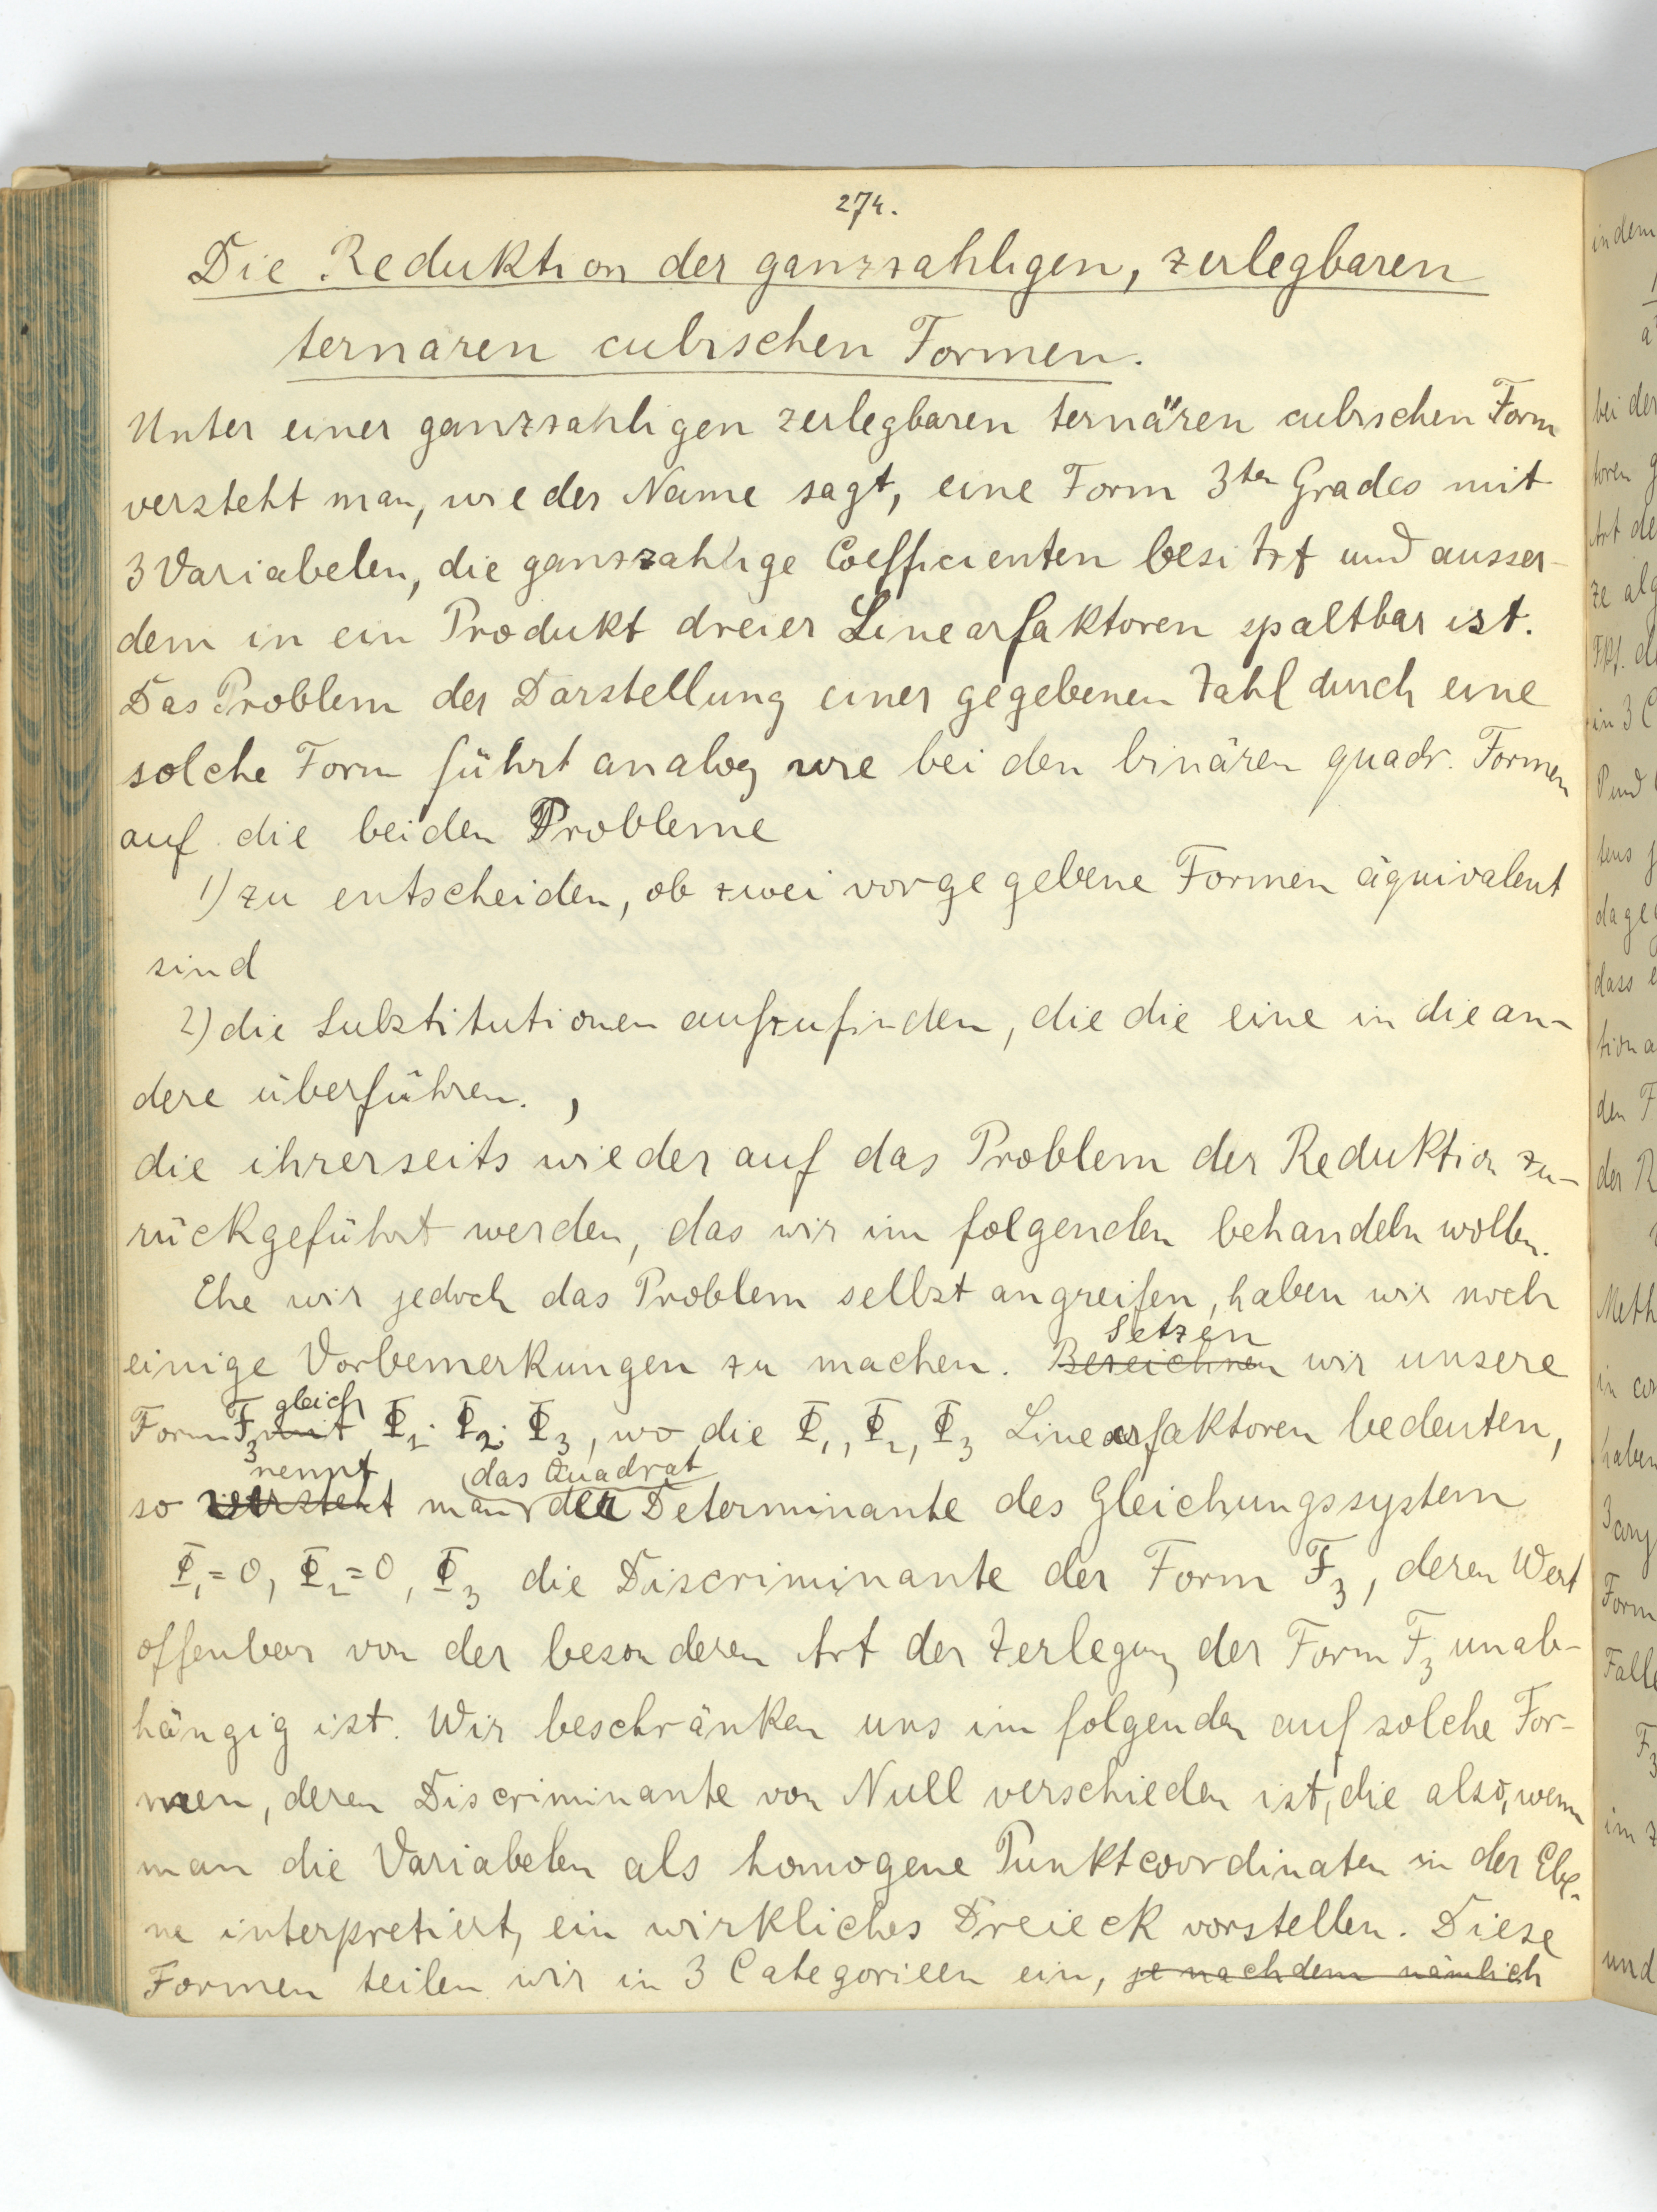 274.
Die Reduktion der ganzzahligen, zerlegbaren
ternaren cubischen Formen.
Unter einer ganzzahligen zerlegbaren ternären cubischen Form
versteht man, wie der Name sagt, eine Form 3ten Grades mit
3 Variabelen, die ganzzahlige Coefficienten besitzt und ausser-
dem in ein Produkt dreier Linearfaktoren spaltbar ist.
Das Problem der Darstellung einer gegebenen Zahl durch eine
solche Form führt analog wie bei den binären quadr. Formen
auf die beiden Probleme
1) zu entscheiden, ob zwei vorgegebene Formen äquivalent
sind
2) die Substitutionen aufzufinden, die die eine in die an-
dere überführen. ,
die ihrerseits wieder auf das Problem der Reduktion zu-
rückgeführt werden, das wir im folgenden behandeln wollen.
Ehe wir jedoch das Problem selbst angreifen, haben wir noch
Setzen
einige Vorbemerkungen zu machen. Bezeichnen wir unsere
gleich
Form F₃ mit Φ₁· Φ₂· Φ₃, wo die Φ₁, Φ₂, Φ₃ Linearfaktoren bedeuten,
nennt das Quadrat
so versteht man der Determinante des Gleichungssystem
Φ₁=0, Φ₂=0, Φ₃ die Discriminante der Form F₃, deren Wert
offenbar von der besonderen Art der Zerlegung der Form F₃ unab-
hängig ist. Wir beschränken uns im folgenden auf solche For-
men, deren Discriminante von Null verschieden ist, die also, wenn
man die Variabelen als homogene Punktcoordinaten in der Ebe-
ne interpretiert, ein wirkliches Dreieck vorstellen. Diese
Formen teilen wir in 3 Categorieen ein, je nachdem nämlich
in dem
bei der
den F
der R
Meth
haben
Form
Falle
F₃
und